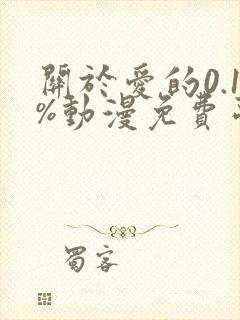 關於愛的0.1
%動漫免費
蜀客